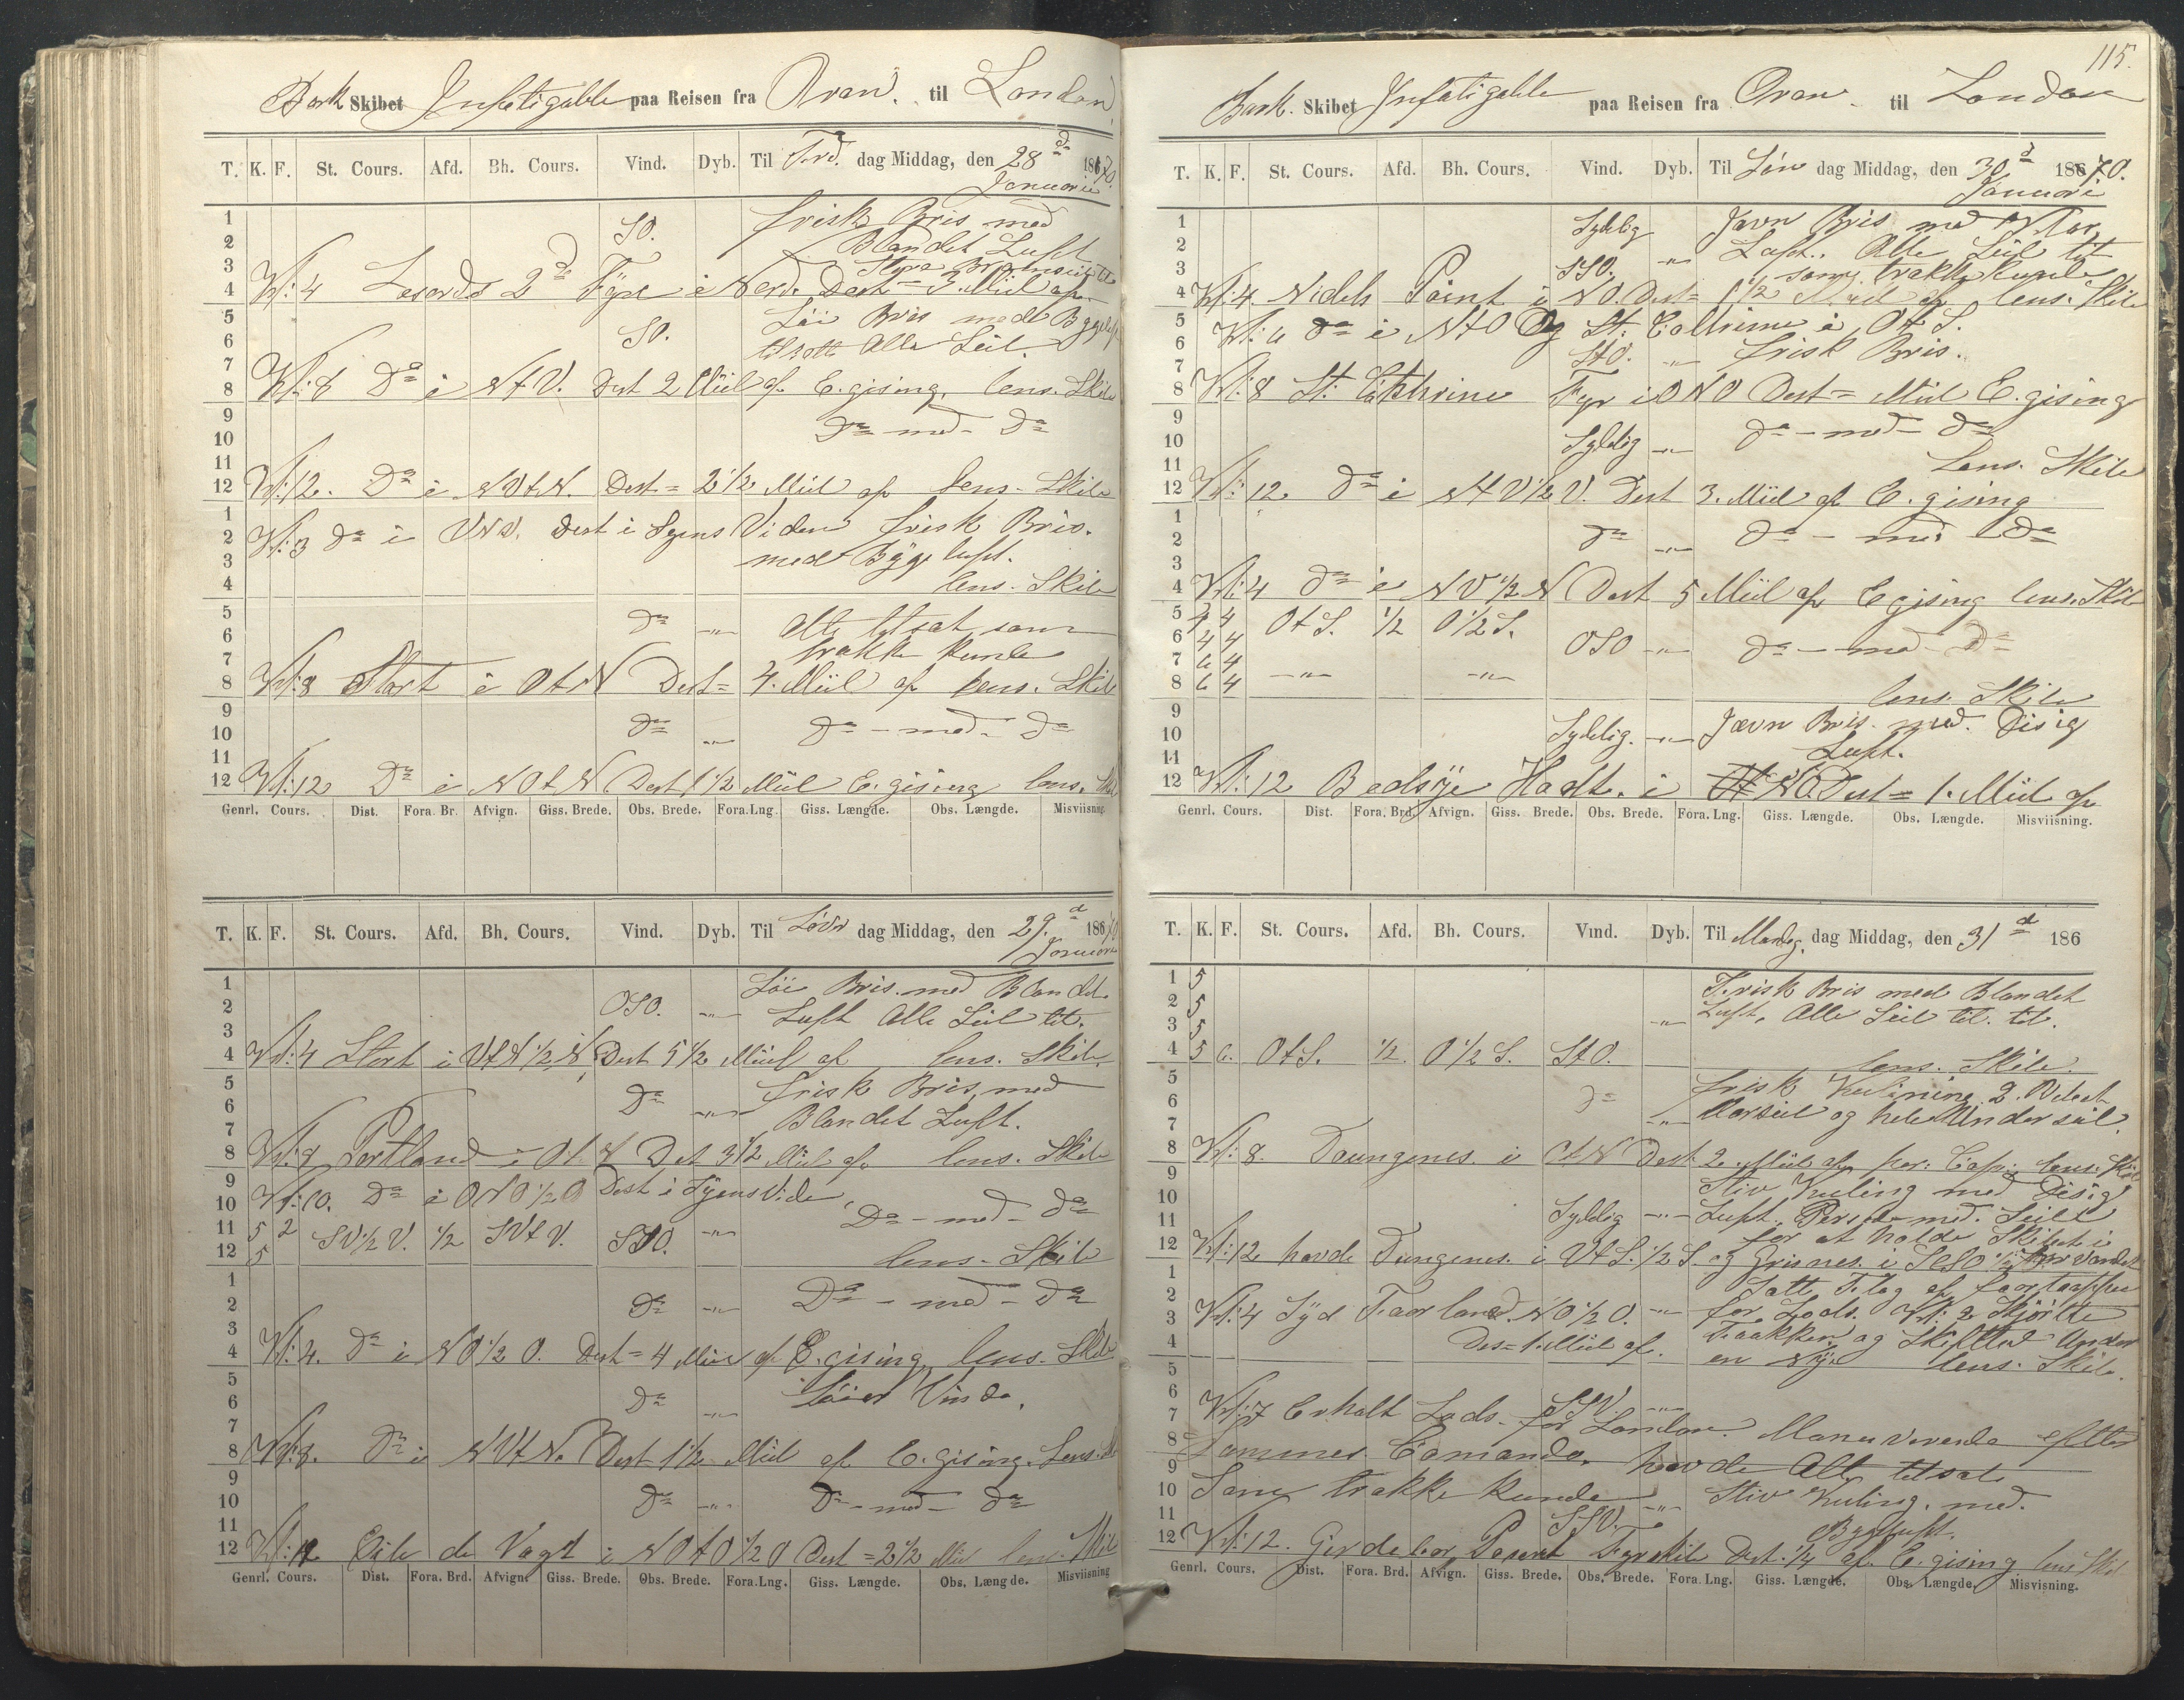 Bark Skibet Infatigable paa Reisen fra Oran. til London.
T. K. F. St. Cours. Afd. Bh. Cours. Vind. Dyb. Til Fred. dag Middag, den 28d 1870.
Januarie
1
SO. frisk Bris med
2
Blandet Luft
3
4 Kl: 4 2de Fyre i Nord. Dest = 3. Miil af
5
Löi Bris med Bygeluft
6 SO.
tilsatt Alle Seil.
7
8 Kl: 8 Do i NtV. Dest 2 Miil af E. gising. lens. Skib
9
Do - med - Do
10
11
12 Kl: 12. Do i NVtN. Dest = 2 1/2 Miil af lens. Skib
1
2 Kl: 3 Do i VNV. Dest i Syens Viden frisk Bris.
3
med Byge luft.
4
lens. Skib
5
Do -"- Alt tilsat som
6
trække kunde
7
8 Kl: 8 Start i OtN Dest = 4. Miil af lens. Skib
9
Do -"- Do - med - Do
10
11
12 Kl: 12 Do i NOtN Dest 1 1/2 Miil E. gising lens. Skib
Genrl. Cours. Dist. Fora. Br. Afvign. Giss. Brede. Obs. Brede. Fora.Lng. Giss. Længde. Obs. Længde. Misviisning
T. K. F. St. Cours. Afd. Bh. Cours. Vind. Dyb. Til Löver dag Middag, den 29.d 1870
Januari
1
Löi Bris. med Blandet
2 OSO. -"-
Luft Alle Seil til.
3
4 Kl: 4 Start i VtN 1/2 N Dest 5 1/2 Miil af lens. Skib.
5
frisk Bris, med
6 Do -"-
Blandet Luft.
7
8 Kl: 8 Portland i OtN Dst 3 1/2 Miil af. lens. Skib
9
Kl: 10. Do i ONO 1/2 O Dest i Syens Vide
10
Do - med - Do
11 5 2 SV 1/2 V. 1/2 SVtV. SSO. -"-
12 5 lens. Skib
1
2 Do -"- Do - med - Do
3
4 Kl: 4. Do i NO 1/2 O. Dest = 4 Miil af E. gising, lens. Skib
5
6 Do -"- löier Vinde.
7
8 Kl: 8. Do i NVtN. Dest 1 1/2 Miil af E. gising. Lens. Sk
9
10 Do -"- Do - med - Do
11
12 Kl: 12 de Vagt i NOtO 1/2 O Dest = 2 1/2 Miil lens. Skib
Genrl. Cours. Dist. Fora. Brd. Afvign. Giss. Brede. Obs. Brede. Fora.Lng. Giss. Længde. Obs. Længde. Misviisning
115.
Bark. Skibet Infatigable paa Reisen fra Oran. til London
T. K. F. St. Cours. Afd. Bh. Cours. Vind. Dyb. Til Søn dag Middag, den 30d 1870.
Januari
1
Sydlig Jævn Bris med Klar
2
-"- Luft. Alle Seil til
3 SSO.
som trække kunde
4 Kl: 4 Nidels Point i NO. Dest = 1 1/2 Miil af lens. Skib
5
Kl: 6 Do i NtO Og St: Cathrine i OtS.
6
StO. -"- frisk Bris.
7
8 Kl: 8 St. Cathrine Fyr i ONO Dest = Miil E. gising
9
Sydlig -"- Do - med - Do
10
Lens. Skib
11
12 Kl: 12 Do i NtV 1/2 V. Dest 3. Miil af E. gising
1
2 Do -"- Do - med - Do
3
4 Kl: 4 Do i NV 1/2 N Dest 5 Miil af E gising lens. Skib
5 4 OtS. 1/2 O 1/2 S.
6 4 4 OSO -"- Do - med - Do
7 6 4
8 6 4 -"- -"-
lens. Skib
9
Sydlig. -"- Jævn Bris. med. Disig
10
Luft.
11
12 Kl: 12 Bedsÿe Hadt. i NO Dest = 1. Miil af
Genrl. Cours. Dist. Fora. Brd. Afvign. Giss. Brede. Obs. Brede. Fora. Lng. Giss. Længde. Obs. Længde. Misviisning.
T. K. F. St. Cours. Afd. Bh. Cours. Vind. Dyb. Til Mandg. dag Middag, den 31d 186
1 5
Frisk Bris med Blandet
2 5
Luft, Alle Seil til.
3 5 -"-
4 5 6. OtS. 1/2. O 1/2 S. StO.
lens. Skib.
5
frisk Kulining 2.
6 Do
Marseil og hele Underseil.
7 -"-
8 Kl: 8. Doungenes. i OtN Dest 2. Miil af lens. Skib
9
Stiv Kuling med Disig
10
Sydlig -"- Luft. med. Seil
11
for at holde Skibet i
12 Kl: 12 havde Dungenes. i VtS. 1/2 S. og Grisnes. i
1
Satt Flag af foor toppen
2
for Lods. Kl: 2
3 Kl: 4 Syd Foorland. NO 1/2 O. -"-
Faakken og
4 Des = 1. Miil af.
en lens. Skib.
5
6 SSV. -"-
7 Kl: 7 Erholt Lods. for London. Manuverende efter
8 Lommes. Comando. havde Alt tilsat
9
10 Som trække kunde -"- Stiv Kuling. med.
11 SSV.
Bygeluft.
12 Kl: 12. Fyrskib Dest. 1/4 af E. gising lens Skib
Genrl. Cours. Dist. Fora. Brd. Afvign. Giss. Brede. Obs. Brede. Fora. Lng. Giss. Længde. Obs. Længde. Misvisning.